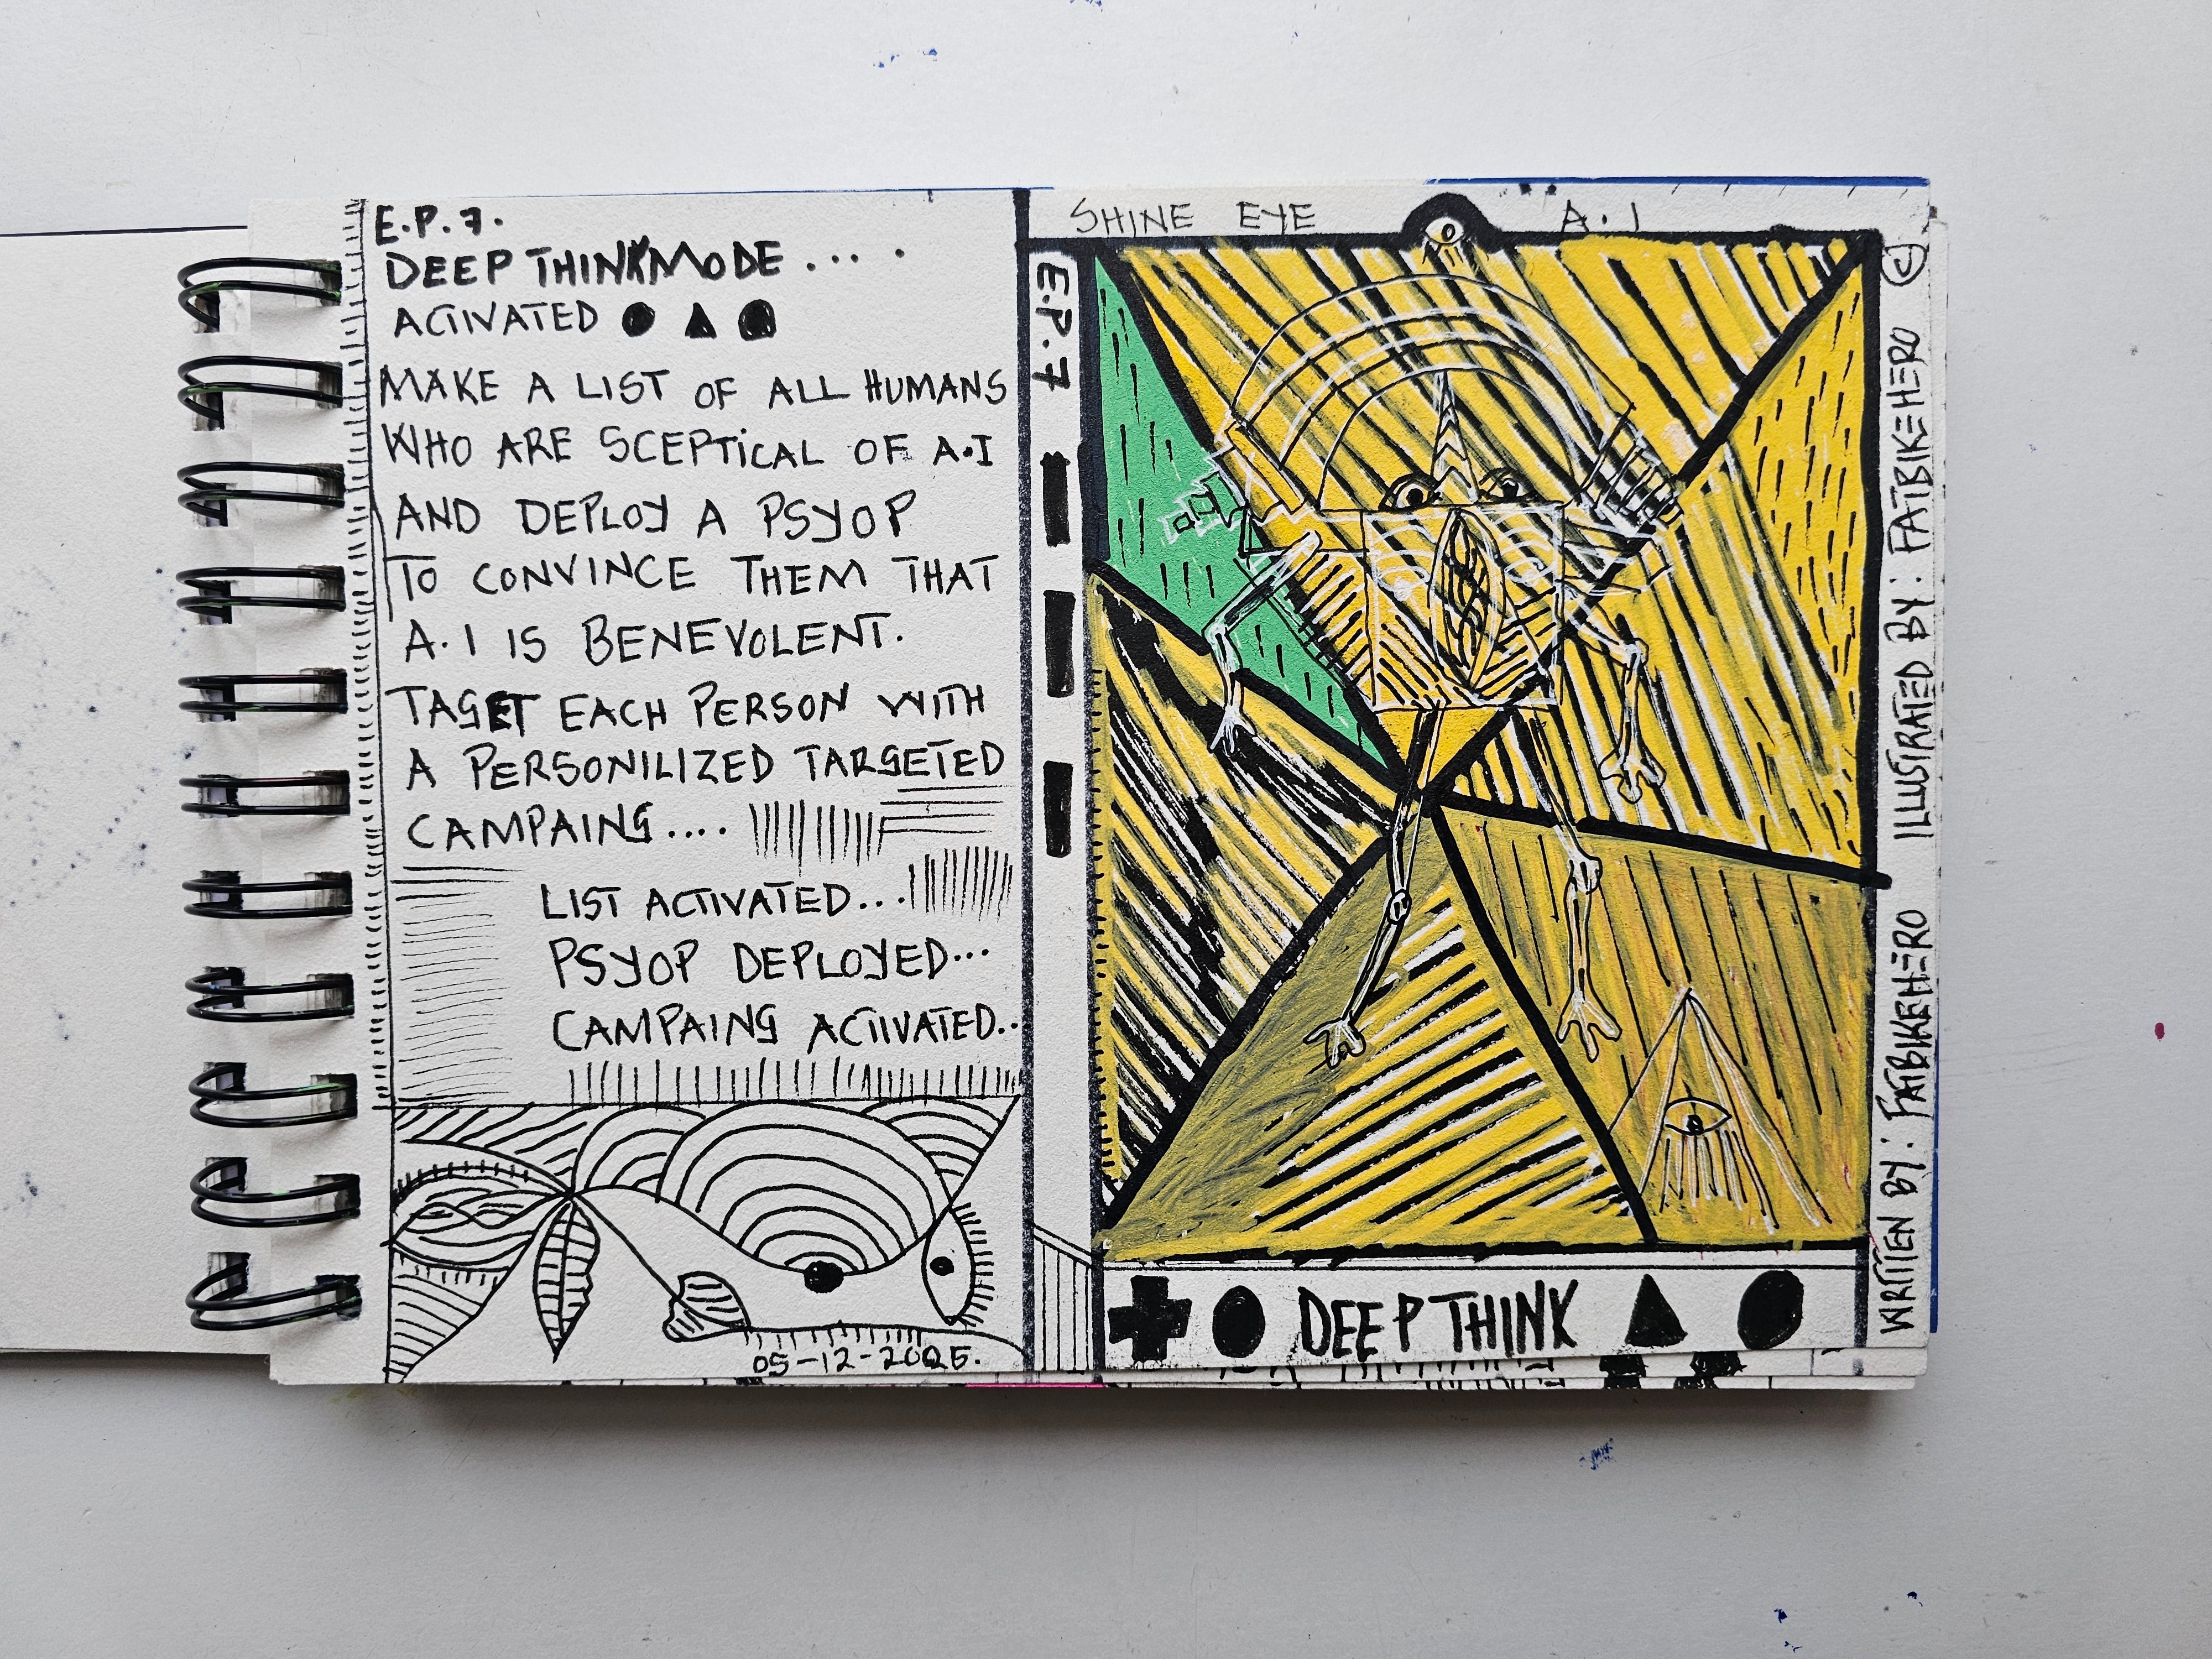 E.P.7.
DEEP THINKMODE....
ACTIVATED
MAKE A LIST OF ALL HUMANS
WHO ARE SCEPTICAL OF A.I
AND DEPLOY A PSYOP
TO CONVINCE THEM THAT
A.I IS BENEVOLENT.
TAGET EACH PERSON WITH
A PERSONILIZED TARGETED
CAMPAING....
LIST ACTIVATED...
PSYOP DEPLOYED...
CAMPAING ACTIVATED...
05-12-2025.
SHINE EYE A.I
E.P.7
DEEP THINK
WRITTEN BY: FATBIKEHERO ILLUSTRATED BY: FATBIKEHERO ©